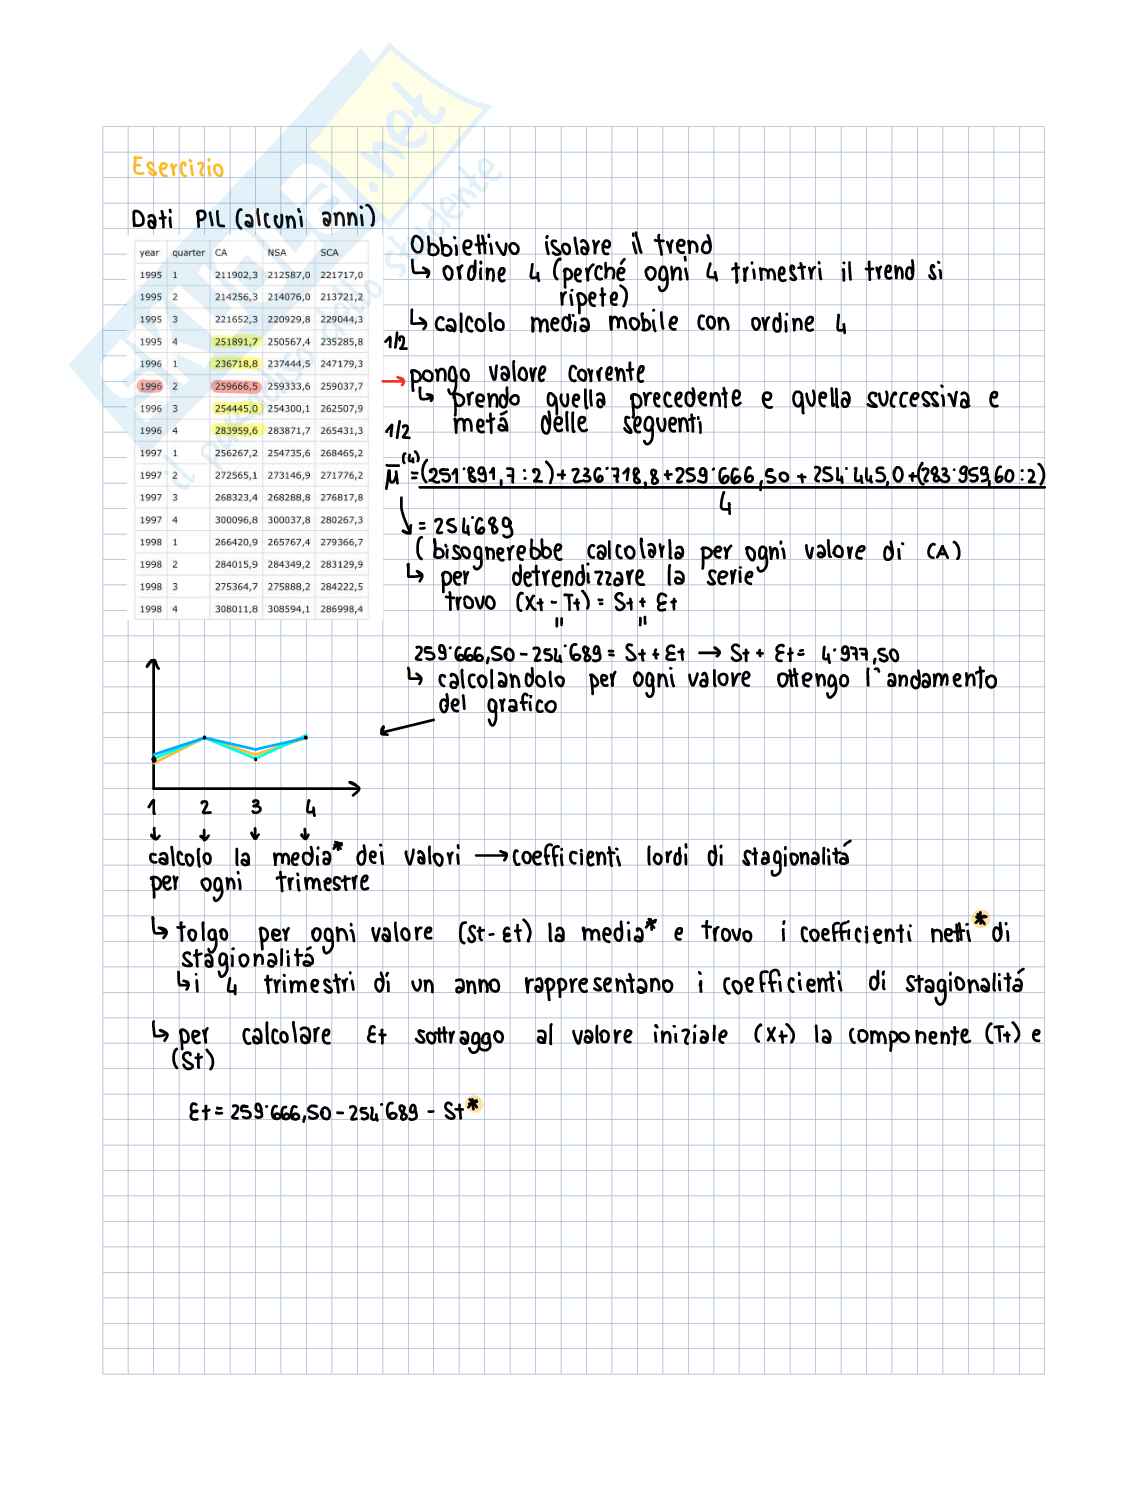 Esercizio
Dati PIL (alcuni anni)
year quarter CA NSA SCA
1995 1 211902,3 212587,0 221717,0
1995 2 214256,3 214076,0 213721,2
1995 3 221652,3 220929,8 229044,3
1995 4 251891,7 250567,4 235285,8
1996 1 236718,8 237444,5 247179,3
1996 2 259666,5 259333,6 259037,7
1996 3 254445,0 254300,1 262507,9
1996 4 283959,6 283871,7 265431,3
1997 1 256267,2 254735,6 268465,2
1997 2 272565,1 273146,9 271776,2
1997 3 268323,4 268288,8 276817,8
1997 4 300096,8 300037,8 280267,3
1998 1 266420,9 265767,4 279366,7
1998 2 284015,9 284349,2 283129,9
1998 3 275364,7 275888,2 284222,5
1998 4 308011,8 308594,1 286998,4
Obbiettivo isolare il trend
↳ ordine 4 (perché ogni 4 trimestri il trend si
ripete)
↳ calcolo media mobile con ordine 4
1/2
→ pongo valore corrente
↳ prendo quella precedente e quella successiva e
1/2 metá delle seguenti
μ̅⁽⁴⁾ = (251˙891,7 : 2) + 236˙718,8 + 259˙666,50 + 254˙445,0 + (283˙959,60 : 2)
4
= 254˙689
( bisognerebbe calcolarla per ogni valore di CA)
↳ per detrendizzare la serie
trovo (Xt - Tt) = St + Ɛt
" "
259˙666,50 - 254˙689 = St + Ɛt → St + Ɛt = 4˙977,50
↳ calcolandolo per ogni valore ottengo l'andamento
del grafico
1 2 3 4
calcolo la media* dei valori → coefficienti lordi di stagionalitá
per ogni trimestre
↳ tolgo per ogni valore (St - Ɛt) la media* e trovo i coefficienti netti* di
stagionalitá
↳ i 4 trimestri di un anno rappresentano i coefficienti di stagionalitá
↳ per calcolare Ɛt sottraggo al valore iniziale (Xt) la componente (Tt) e
(St)
Ɛt = 259˙666,50 - 254˙689 - St*
SKUOLA.net
il paradiso dello studente